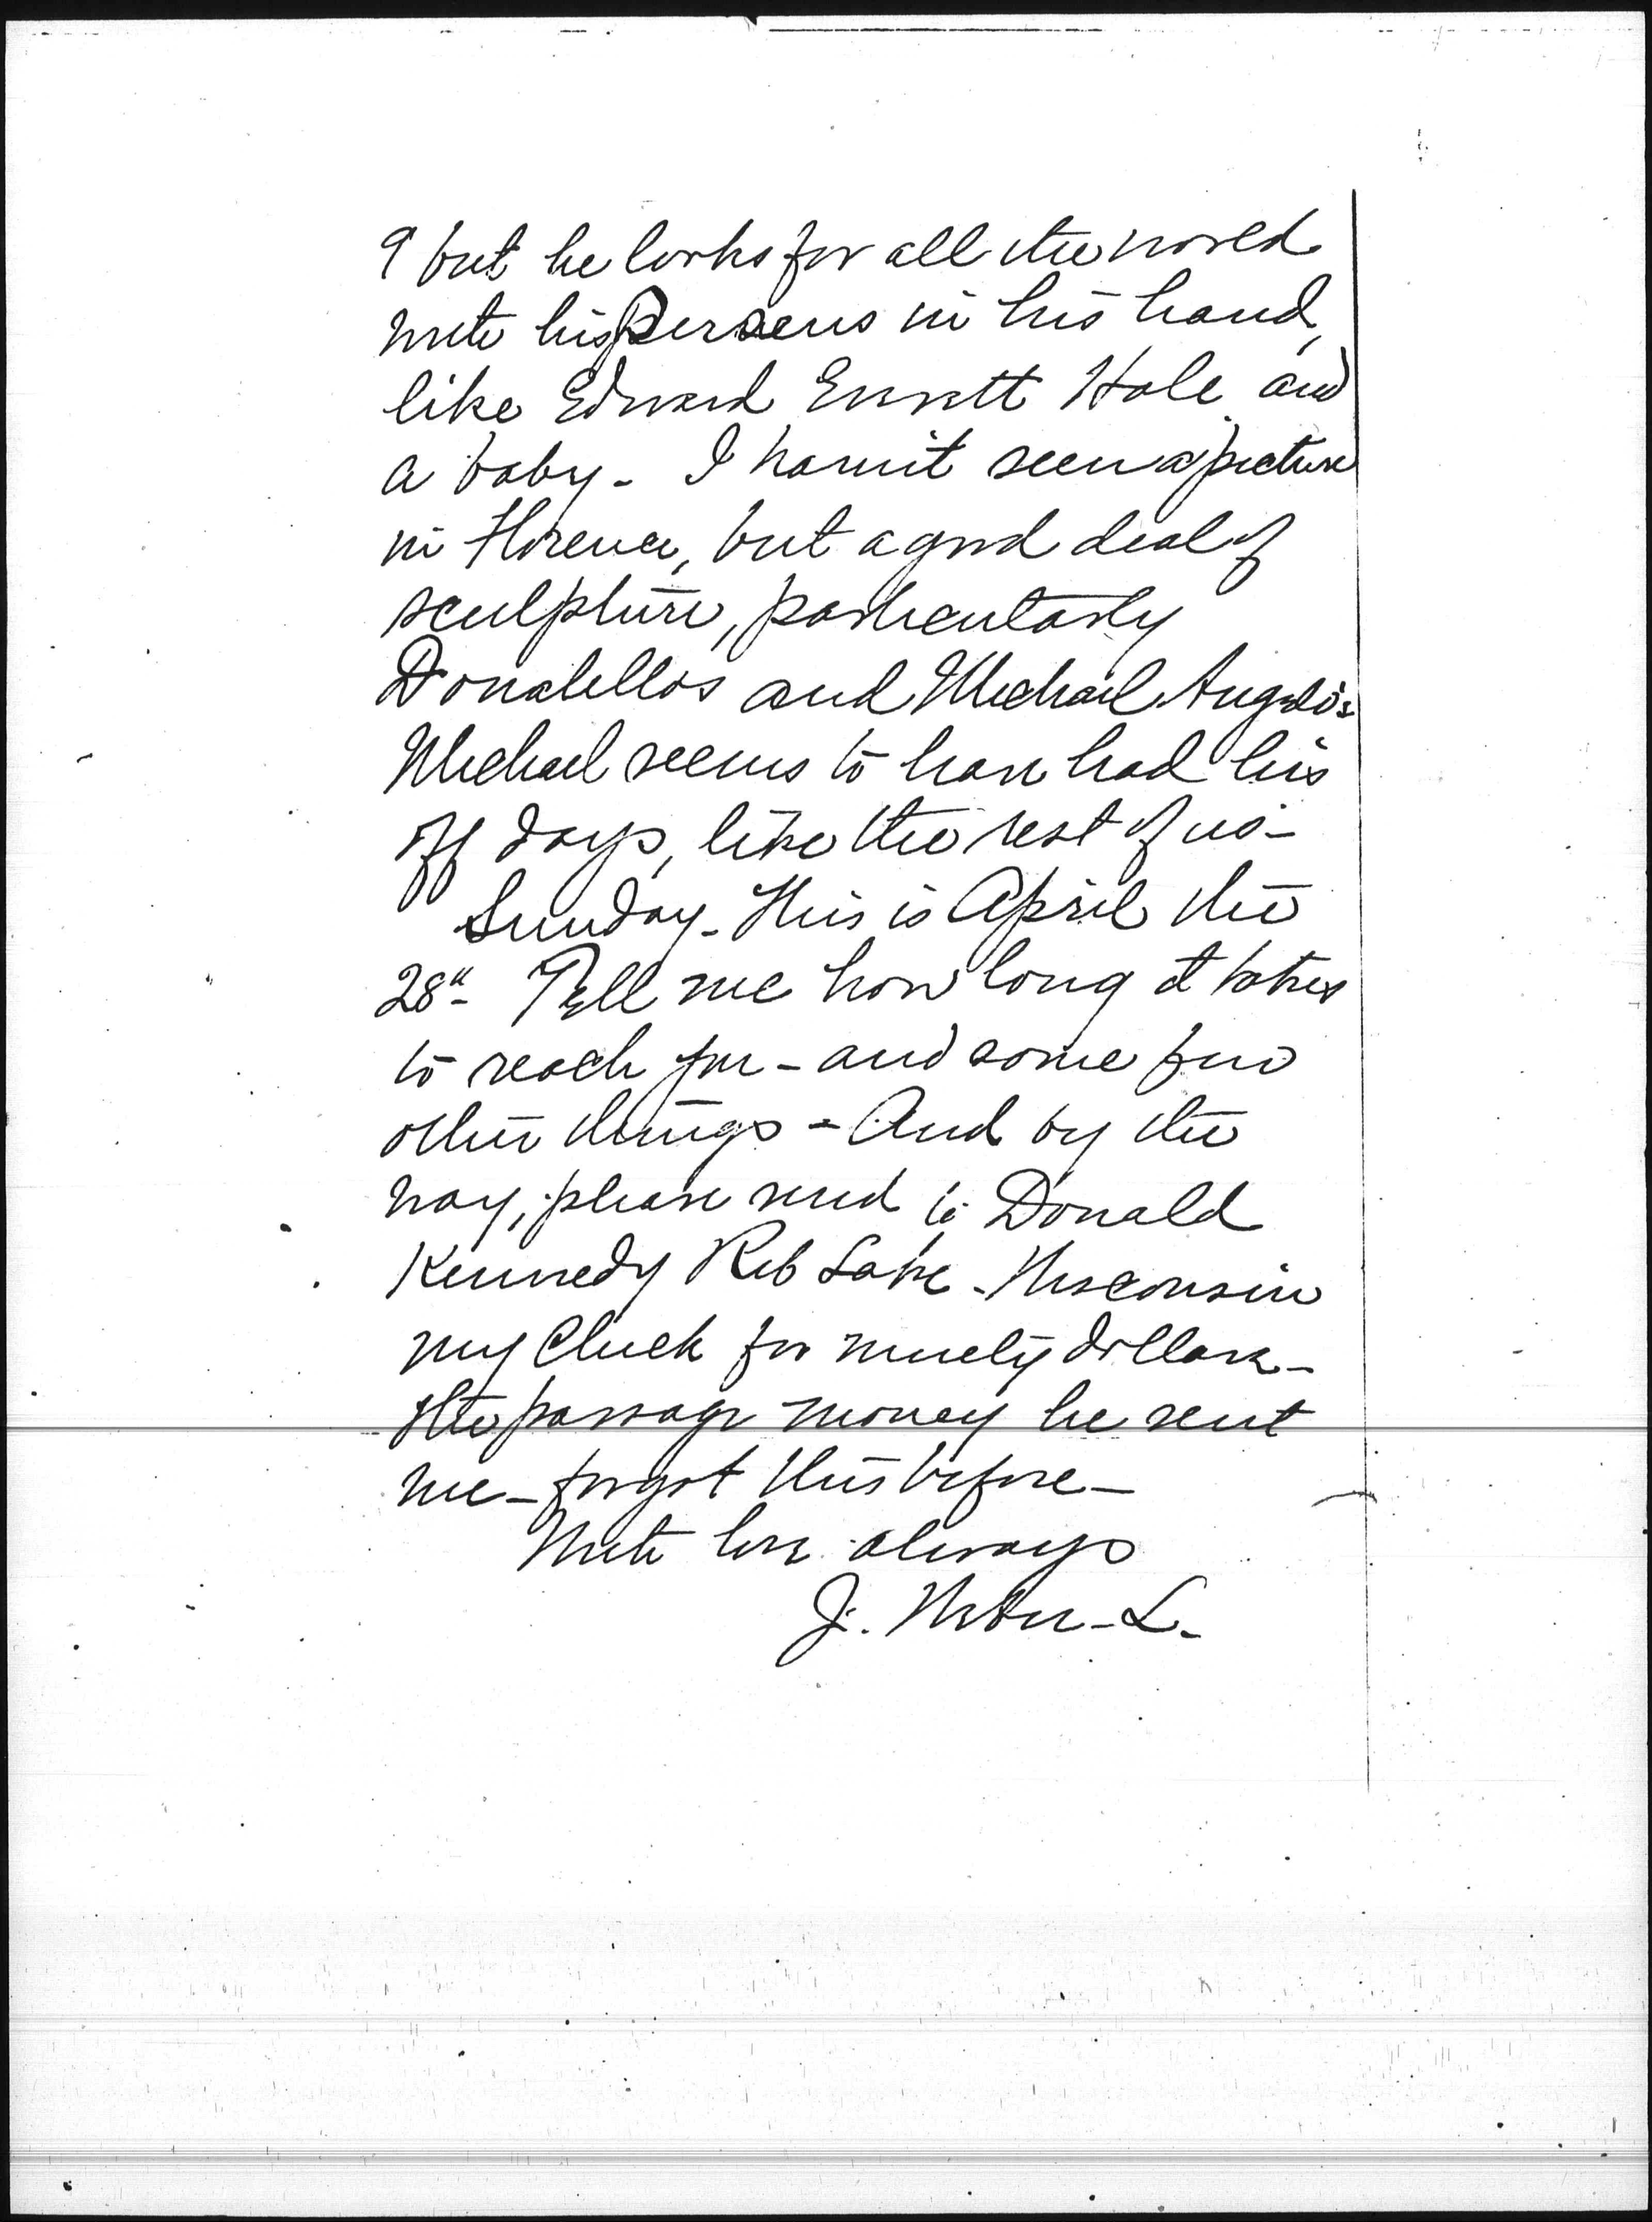 9 but he looks for all the world
with his Perseus in his hand,
like Edward Everett Hale and
a baby - I havn't seen a picture
in Florence, but a good deal of
sculpture, particularly
Donatellos and Michael Angelo's
Michael seems to have had his
off days, like the rest of us -
Sunday - This is April the
28" - Tell me how long it takes
to reach you - and some few
other things - And by the
way, please send to Donald
Kennedy Rib Lake - Wisconsin
my check for ninety dollars -
the passage money he sent
me - forgot this before -
With love always
J. Weir - L.